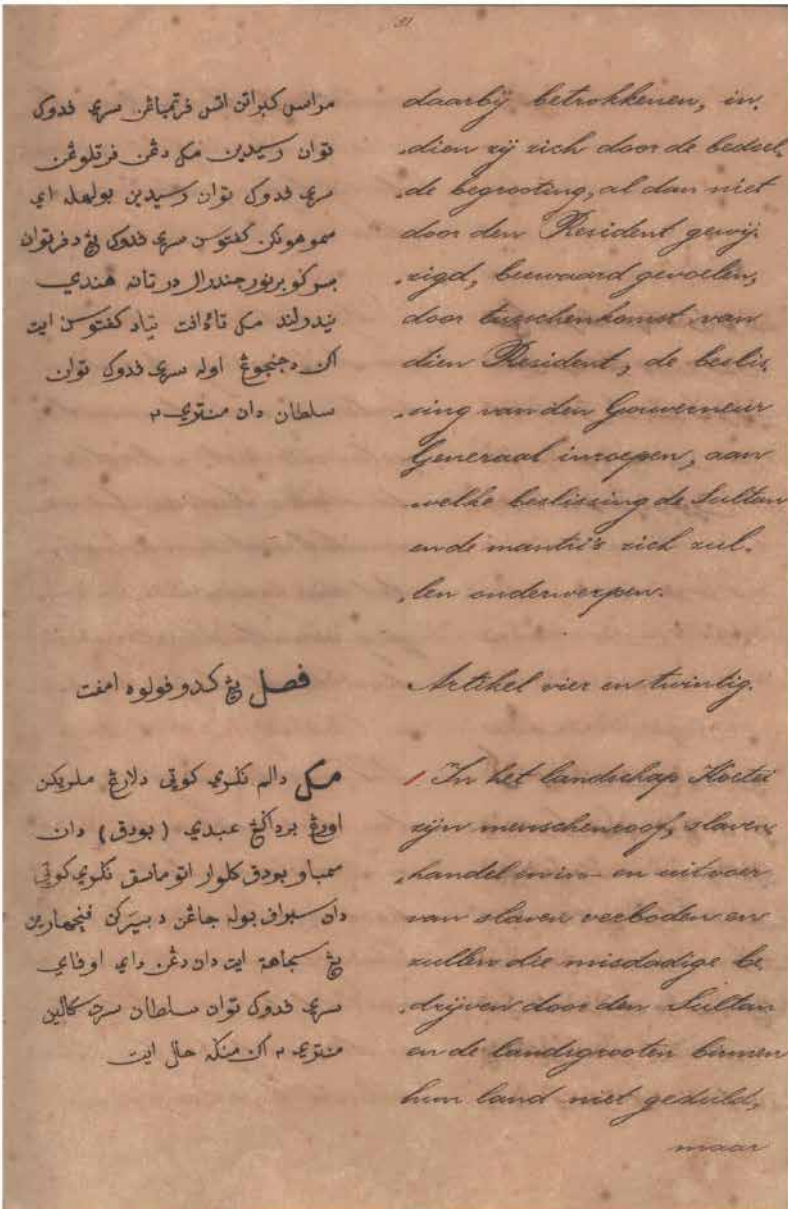 مراسى كبراتن اتس فرتمباڠن سري فدوك
توان رسيدين مك دڠن فرتلوڠن
سري فدوك توان رسيدين بولهله اي
سموهونكن كفتوسن سري فدوك يڠ دفرتوان
بسر كوبرنور جندرال در تانه هندي
نيدرلند مك تادافت تياد كفتوسن ايت
اكن دجنجوڠ اوله سري فدوك توان
سلطان دان منتري٢
فصل يڠ كدو فولوه امفت
مك دالم نكري كوتي دلارڠ ملريكن
اورڠ برداكڠ عبدي (بودق) دان
ممباو بودق كلوار اتو ماسق نكري كوتي
دان سبراف بوله جاڠن دبيركن فنچهارين
يڠ سجاهة ايت دان دڠن داي اوفاي
سري فدوك توان سلطان سرت سكالين
منتري٢ اكن منكه حال ايت
daarbij betrokkenen, in.
.dien zij zich door de bedoel.
.de begrooting, al dan niet
door den Resident gewij.
.zigd, bezwaard gevoelen,
door tusschenkomst van
dien Resident, de beslis.
.sing van den Gouverneur
Generaal inroepen, aan
welke beslissing de Sultan
en de mantri's zich zul.
.len onderwerpen.
Artikel vier en twintig.
In het landschap Koetei
zijn menschenroof, slaven.
.handel en in- en uitvoer
van slaven verboden en
zullen die misdadige be.
.drijven door den Sultan
en de landsgrooten binnen
hun land niet geduld,
maar